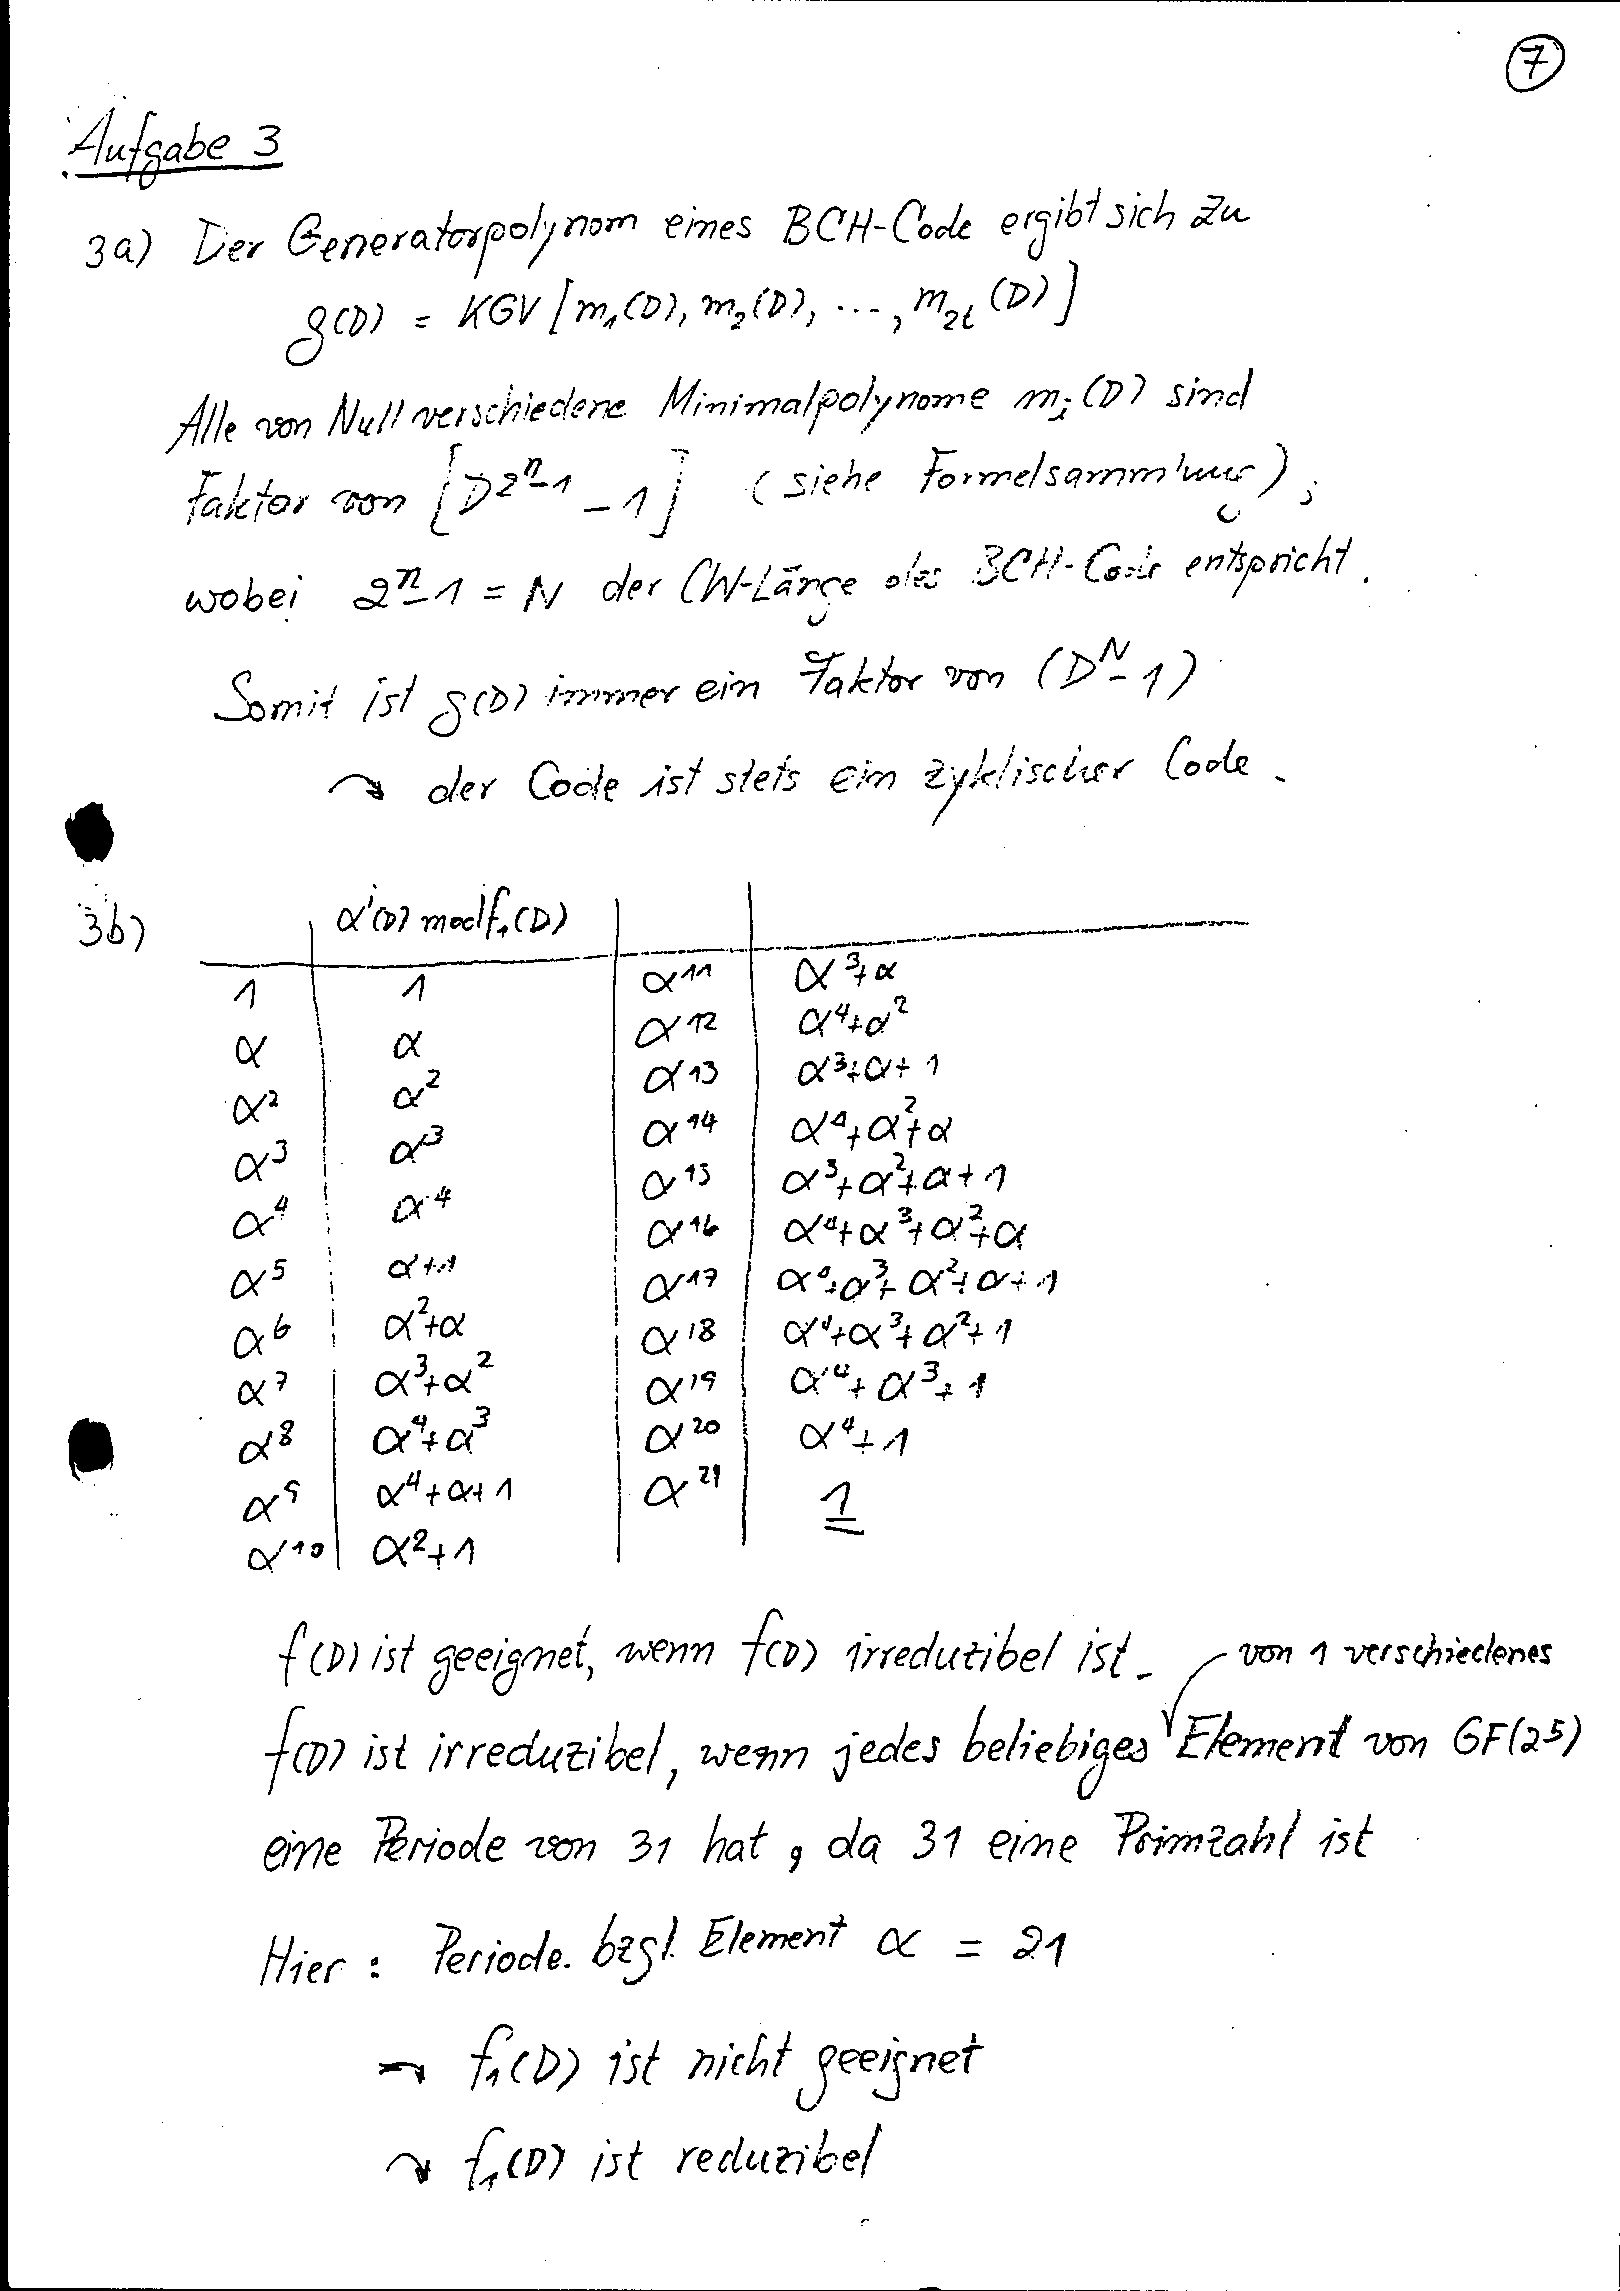 7
Aufgabe 3
3a) Der Generatorpolynom eines BCH-Code ergibt sich zu
g(D) = KGV [m₁(D), m₂(D), ..., m₂ₜ(D)]
Alle von Null verschiedene Minimalpolynome mᵢ(D) sind
Faktor von [D^(2ⁿ-1) - 1] (siehe Formelsammlung),
wobei 2ⁿ-1 = N der CW-Länge des BCH-Code entspricht.
Somit ist g(D) immer ein Faktor von (Dᴺ-1)
↷ der Code ist stets ein zyklischer Code.
3b) αⁱ(D) mod f₁(D)
1 1 α¹¹ α³+α
α α α¹² α⁴+α²
α² α² α¹³ α³+α+1
α³ α³ α¹⁴ α⁴+α²+α
α⁴ α⁴ α¹⁵ α³+α²+α+1
α⁵ α+1 α¹⁶ α⁴+α³+α²+α
α⁶ α²+α α¹⁷ α⁴+α³+α²+α+1
α⁷ α³+α² α¹⁸ α⁴+α³+α²+1
α⁸ α⁴+α³ α¹⁹ α⁴+α³+1
α⁹ α⁴+α+1 α²⁰ α⁴+1
α¹⁰ α²+1 α²¹ 1
f(D) ist geeignet, wenn f(D) irreduzibel ist.
von 1 verschiedenes
f(D) ist irreduzibel, wenn jedes beliebiges Element von GF(2⁵)
eine Periode von 31 hat, da 31 eine Primzahl ist
Hier: Periode bzgl. Element α = 21
↷ f₁(D) ist nicht geeignet
↷ f₁(D) ist reduzibel